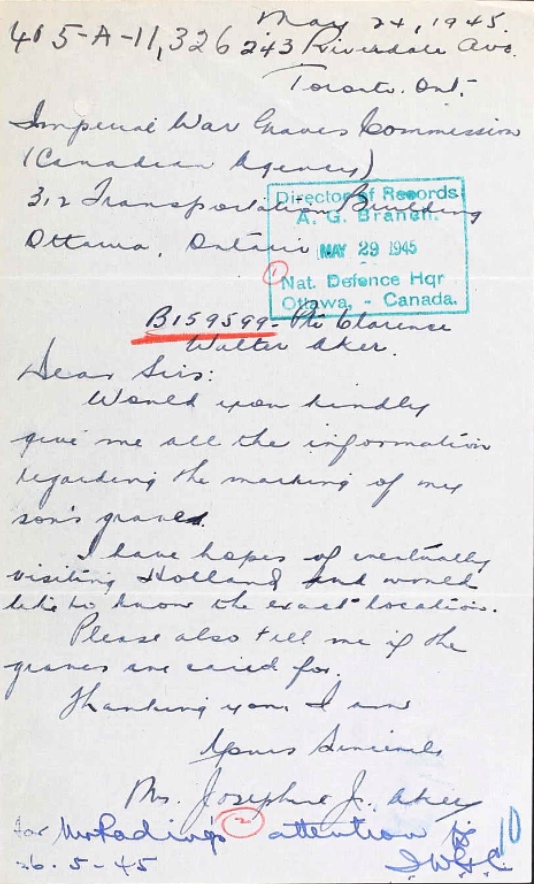 May 24, 1945.
405-A-11,326 243 Riverdale Ave.
Toronto. Ont.
Imperial War Graves Commission
(Canadian Agency)
312 Transportation Building
Ottawa, Ontario
Director of Records
A. G. Branch.
MAY 29 1945
1
Nat. Defence Hqr
Ottawa, - Canada.
B159599 - Pte Clarence
Walter Aker.
Dear Sirs:
Would you kindly
give me all the information
regarding the marking of my
son's grave.
I have hopes of eventually
visiting Holland and would
like to know the exact location.
Please also tell me if the
graves are cared for.
Thanking you I am
Yours Sincerely
Mrs. Josephine J. Aker
2
for attention by
I.W.G.C.
26.5-45
10